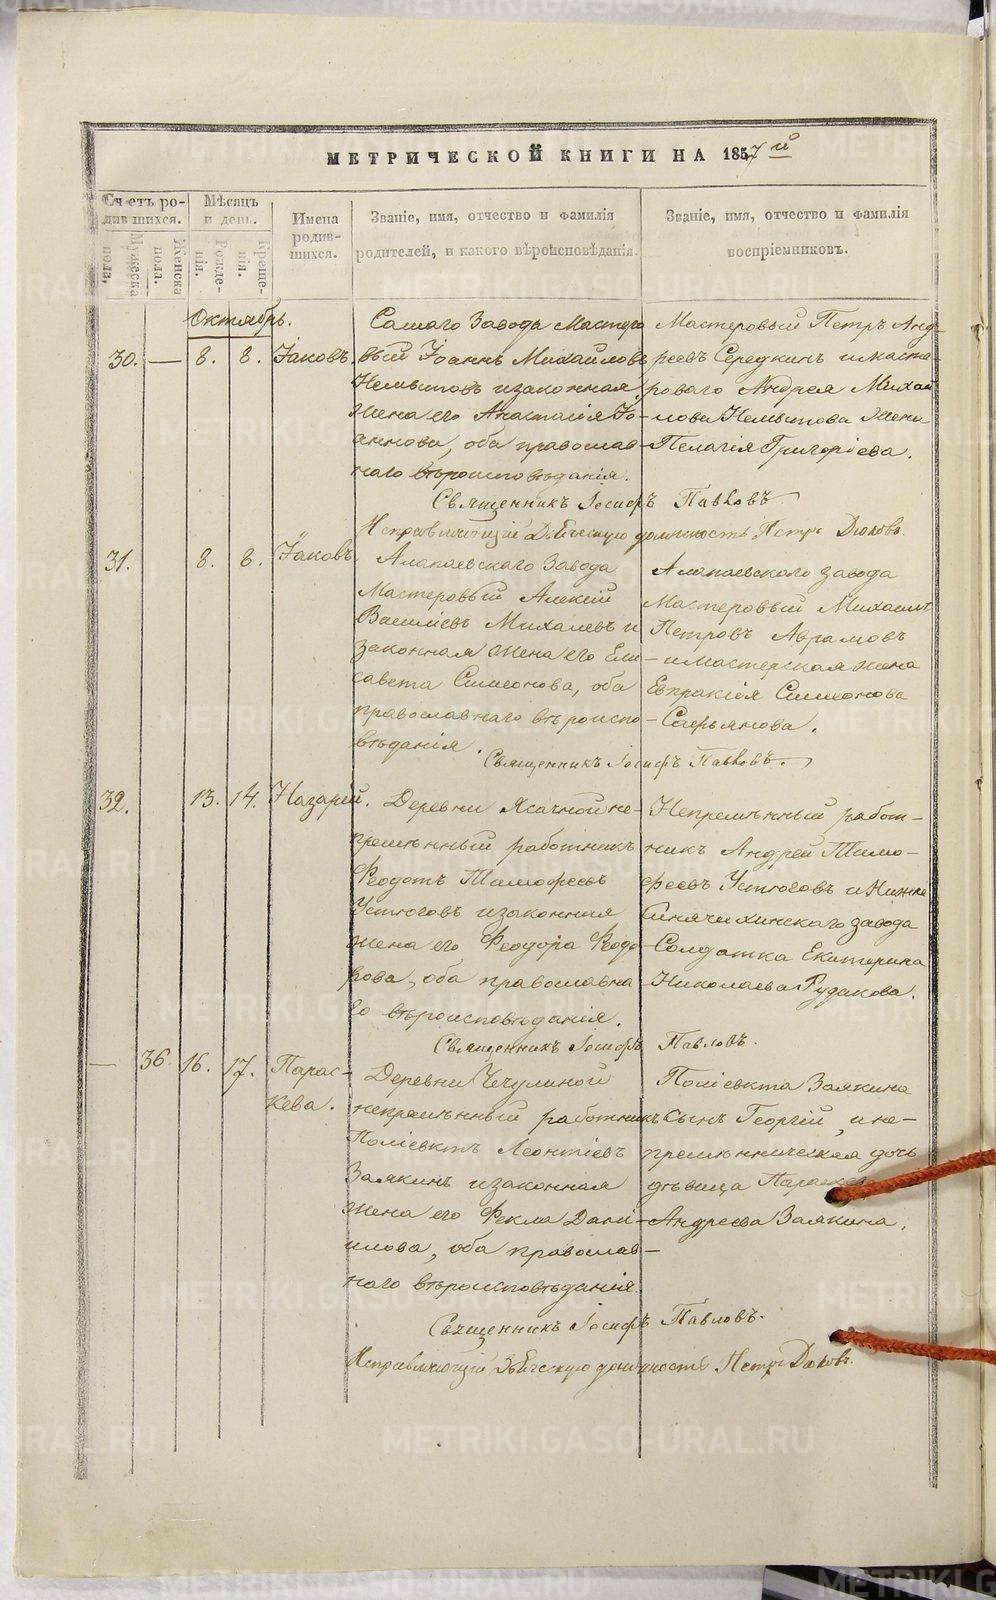 МЕТРИЧЕСКОЙ КНИГИ НА 1857й
Счетъ родившихся.
Мужеска пола.
Женска пола.
Мѣсяцъ и день.
Рожденія.
Крещенія.
Имена родившихся.
Званіе, имя, отчество и фамилія
родителей, и какого вѣроисповѣданія.
Званіе, имя, отчество и фамилія
воспріемниковъ.
Октябрь.
30. — 8. 8. Іаковъ.
Самаго Завода Мастеро
вый Іоаннъ Михайловъ
Немытовъ и законная
жена его Анастасія Іо-
аннова, оба православ-
наго вѣроисповѣданія.
Мастеровый Петръ Анд-
реевъ Середкинъ и масте-
роваго Андрея Михай
лова Немытова жена
Пелагія Григоріева.
Священникъ Іосифъ Павловъ
Исправляющій Дьяческую должность Петръ Дюковъ
31. 8. 8. Іаковъ
Алапаевскаго Завода
Мастеровый Алексій
Василіевъ Михалевъ и
законная жена его Ели-
савета Симеонова, оба
православнаго вѣроиспо-
вѣданія.
Алапаевскаго завода
Мастеровый Михаилъ
Петровъ Аврамовъ
и мастерская жена
Евпраксія Симеонова
Сафьянова.
Священникъ Іосифъ Павловъ.
32. 13. 14. Назарій.
Деревни Ясачной не-
премѣнный работникъ
Феодотъ Тимофеевъ
Устюговъ и законная
жена его Феодора Федо
рова, оба православна
го вѣроисповѣданія.
Непремѣнный работ-
никъ Андрей Тимо-
феевъ Устюговъ и Нижне
Синячихинскаго завода
Солдатка Екатерина
Николаева Рудакова.
Священникъ Іосифъ Павловъ.
— 36 16. 17. Парас-
кева.
Деревни Чечулиной
непремѣнный работникъ
Поліевктъ Леонтіевъ
Заякинъ и законная
жена его Фекла Дані-
илова, оба православ-
наго вѣроисповѣданія.
Поліевкта Заякина
Сынъ Георгій, и не-
премѣнническая дочь
дѣвица Параскева
Андреева Заякина.
Священникъ Іосифъ Павловъ.
Исправляющій Дьяческую должность Петръ Дюковъ.
METRIKI.GASO-URAL.RU